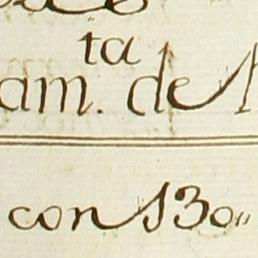 ta
am. de
con 130,,